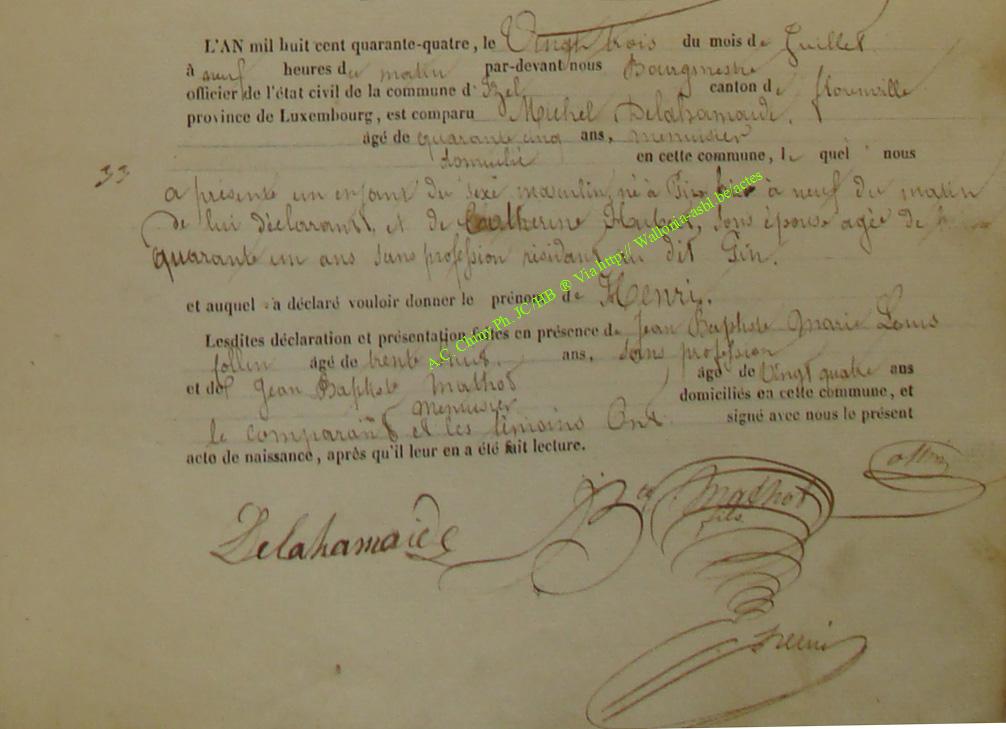 L'AN mil huit cent quarante-quatre, le Vingt trois du mois de Juillet
à neuf heures du matin par-devant nous Bourgmestre
officier de l'état civil de la commune d'Izel canton de florenville
province de Luxembourg, est comparu Michel Delahamaide,
âgé de quarante cinq ans, menuisier
domicilié en cette commune, le quel nous
33
a présenté un enfant du sexe masculin, né à Pin à neuf du matin
de lui déclarant, et de Catherine sons épouse agée de
quarante un ans sans profession résidant au dit Pin.
et auquel a déclaré vouloir donner le prénom de Henri.
Lesdites déclaration et présentation faites en présence de Jean Baptiste Marie Louis
follin âgé de trente ans, sans profession
et de Jean Baptiste Mathot âgé de Vingt quatre ans
menuisier domiciliés en cette commune, et
le comparant et les témoins Ont signé avec nous le présent
acte de naissance, après qu'il leur en a été fait lecture.
A.C. Chiny Ph. JC/HB ® Via http:// Wallonia-asbl.be/actes
Delahamaide Mathot
fils